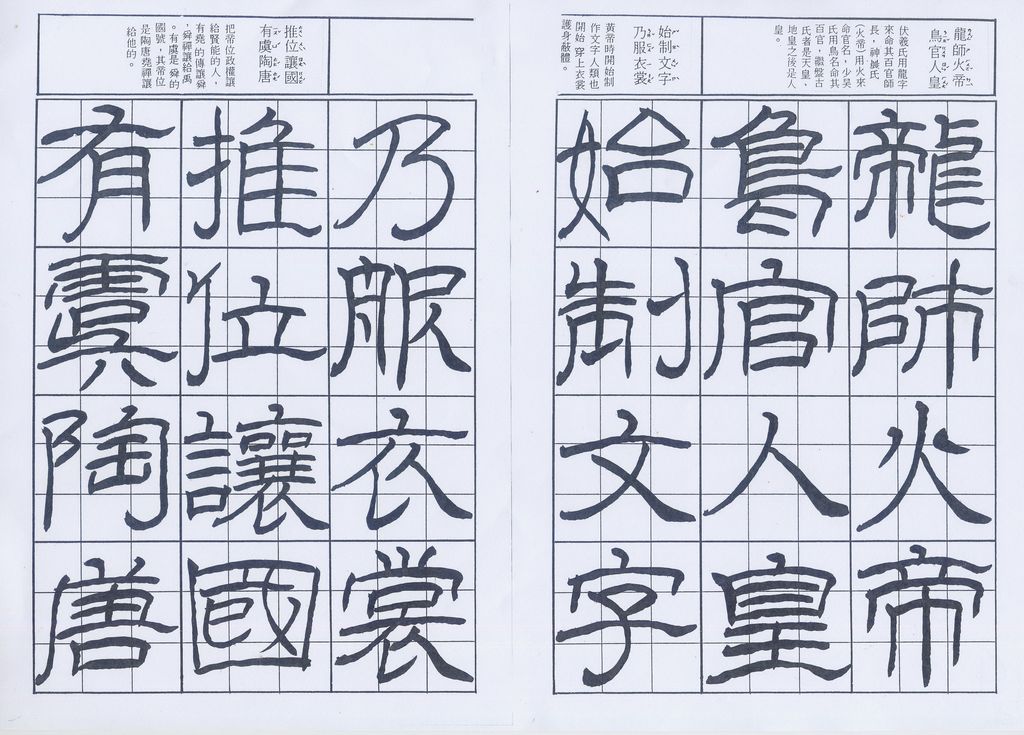 龍師火帝
鳥官人皇
伏羲氏用龍字
來命其百官師
長，神農氏
(火帝)用火來
命官名，少昊
氏用鳥名命其
百官，繼盤古
氏者是天皇、
地皇之後是人
皇。
始制文字
乃服衣裳
黃帝時開始制
作文字人類也
開始 穿上衣裳
護身蔽體。
龍師火帝
鳥官人皇
始制文字
推位讓國
有虞陶唐
把帝位政權讓
給賢能的人，
有堯的傳讓舜
，舜禪讓給禹
。有虞是 舜的
國號，其帝位
是陶唐堯禪讓
給他的。
乃服衣裳
推位讓國
有虞陶唐